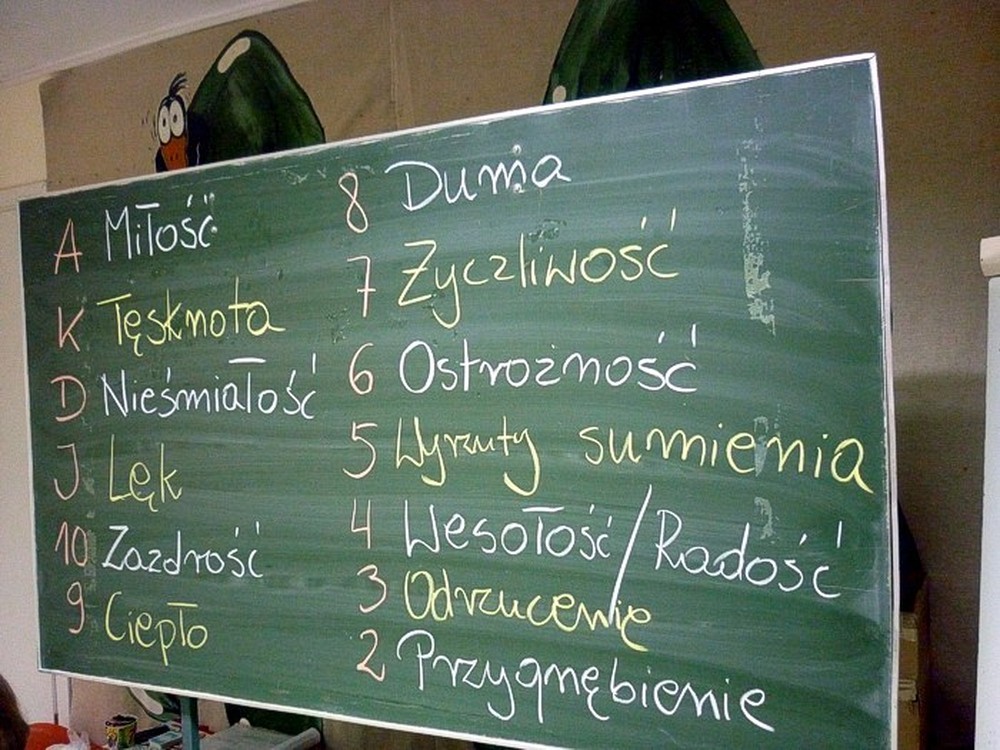 A Miłość
K Tęsknota
D Nieśmiałość
J Lęk
10 Zazdrość
9 Ciepło
8 Duma
7 Życzliwość
6 Ostrożność
5 Wyrzuty sumienia
4 Wesołość/Radość
3 Odrzucenie
2 Przygnębienie